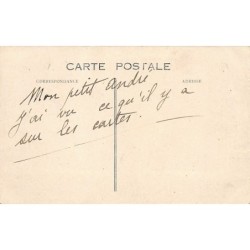 CARTE POSTALE
CORRESPONDANCE
ADRESSE
Mon petit andré
J'ai vu ce qu'il y a
sur les cartes.